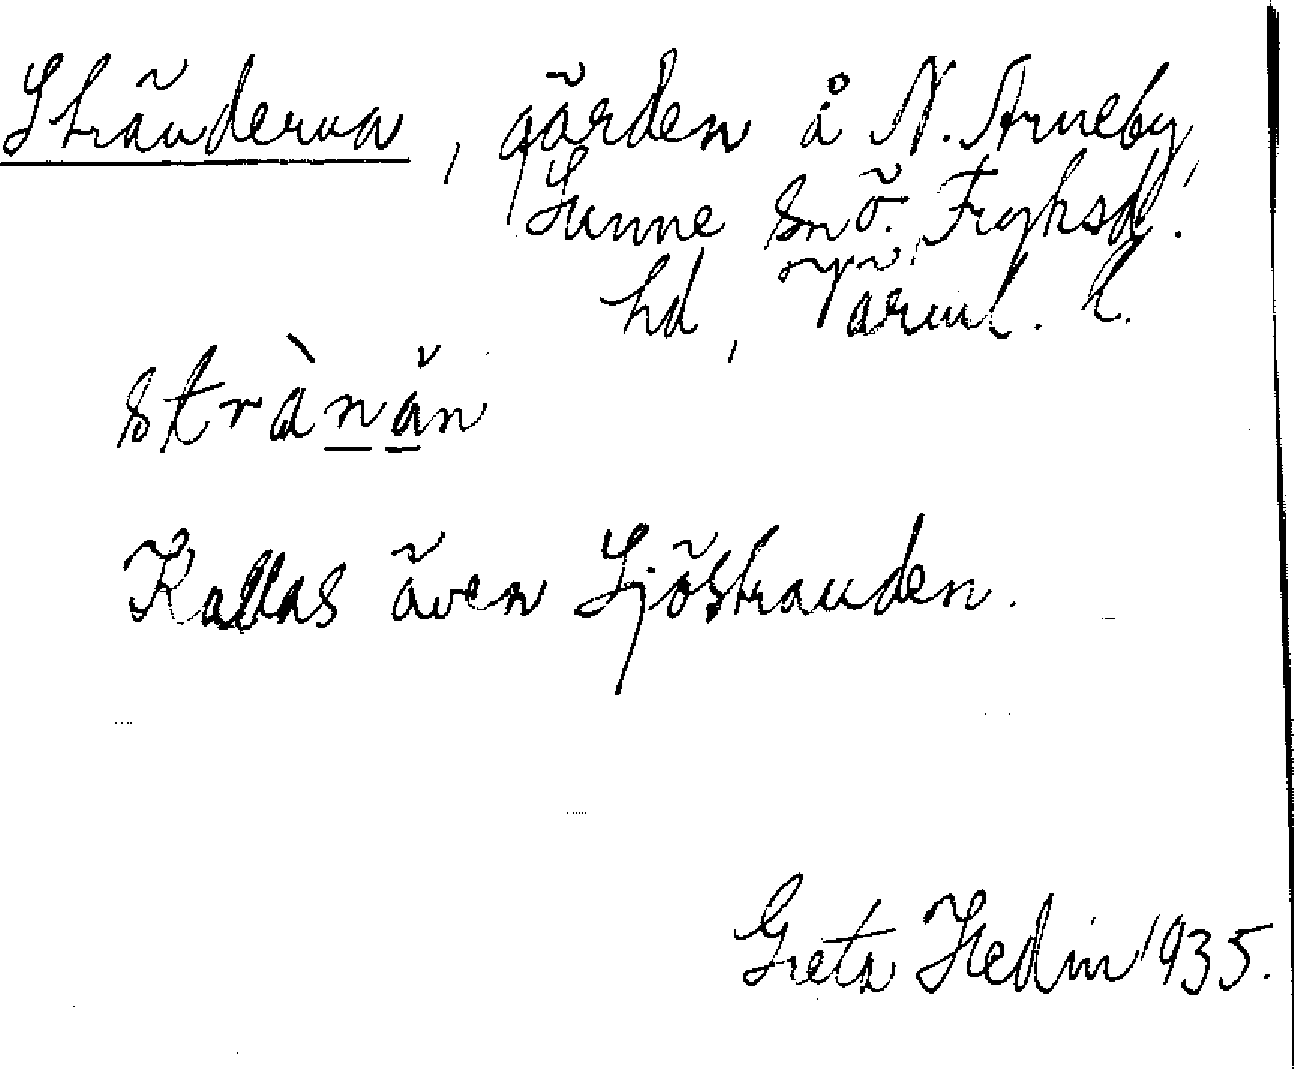 Stränderna, gården å N. Arneby,
Sunne sn Ö. Fryksd.
hd, Värml. l.
strànăn
Kallas även Sjöstranden.
Greta Hedin 1935.